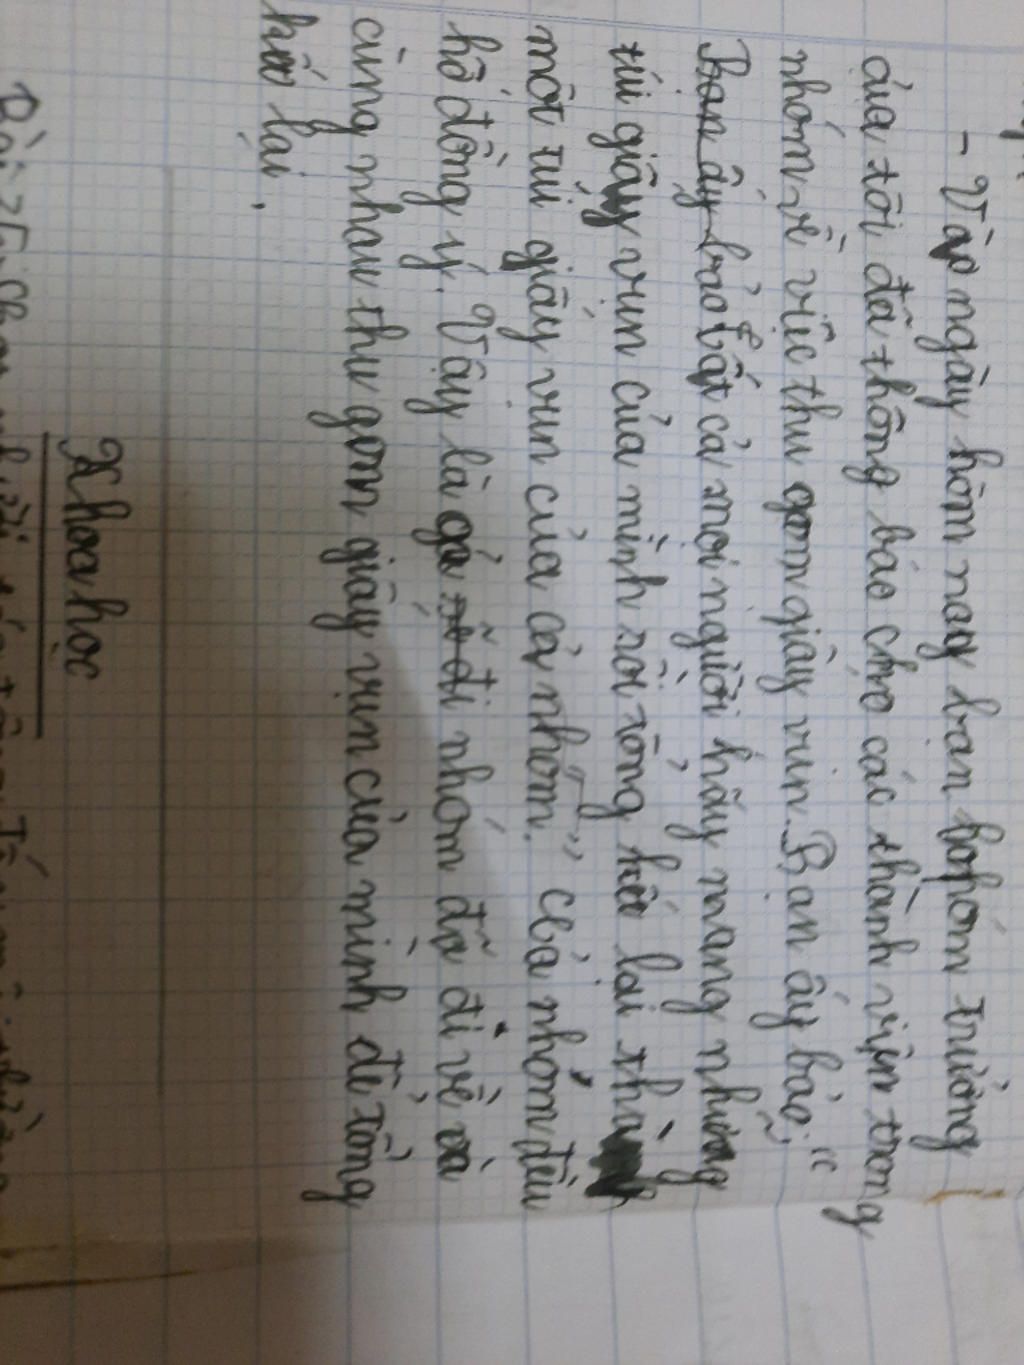 - Vào ngày hôm nay bạn nhóm trưởng
của tôi đã thông báo cho các thành viên trong
nhóm về việc thu gom giấy vụn. Bạn ấy bảo: "
Bạn ấy bảo tất cả mọi người hãy mang những
túi giấy vụn của mình rồi tổng hết lại thành
một túi giấy vụn của cả nhóm." Cả nhóm đều
hô đồng ý. Vậy là cả nhóm đã đi về và
cùng nhau thu gom giấy vụn của mình để tổng
hết lại.
Khoa học